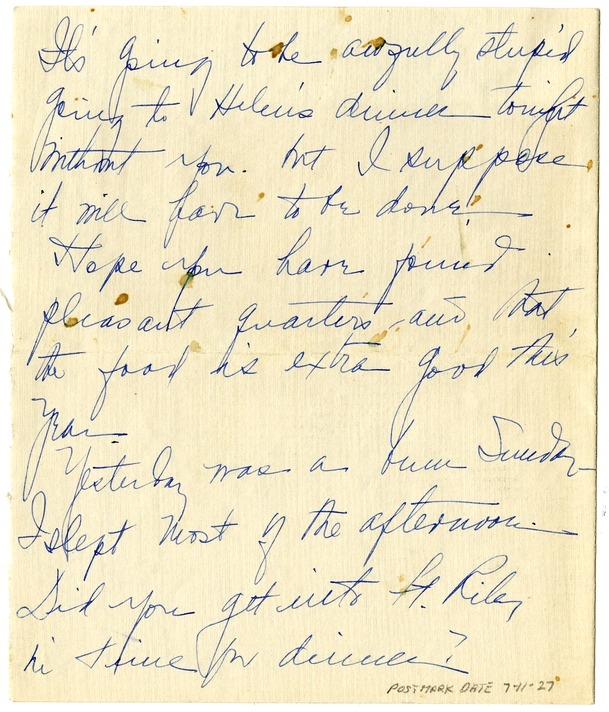 It's going to be awfully stupid
going to Helen's dinner tonight
without you. but I suppose
it will have to be done
Hope you have found
pleasant quarters and that
the food is extra good this
year.
Yesterday was a bum Sunday
I slept most of the afternoon.
Did you get into Ft. Riley
in time for dinner?
POSTMARK DATE 7-11-27